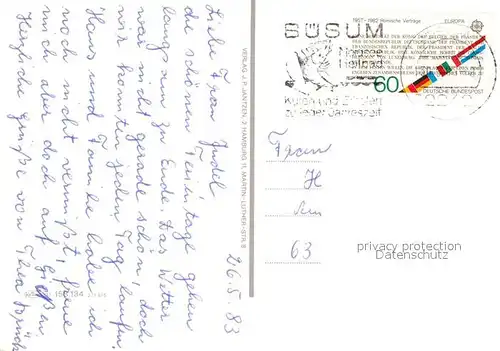 26.5.83
Liebe Frau Judel
die schönen Ferientage gehen
zu Ende. Das Wetter
war nicht gerade schön, doch
wir konnten jeden Tag laufen.
Haus und Familie habe ich
noch nicht vermißt, freue
mich aber doch auf Gießen
Herzliche Grüße von Thea
VERLAG J. P. JANTZEN, 2 HAMBURG 11, MARTIN-LUTHER-STR. 8
BÜSUM
Nordsee
Heilbad
zu jeder Jahreszeit
1957-1982 Römische Verträge EUROPA
60
DEUTSCHE BUNDESPOST
Frau
H
63
privacy protection
Datenschutz